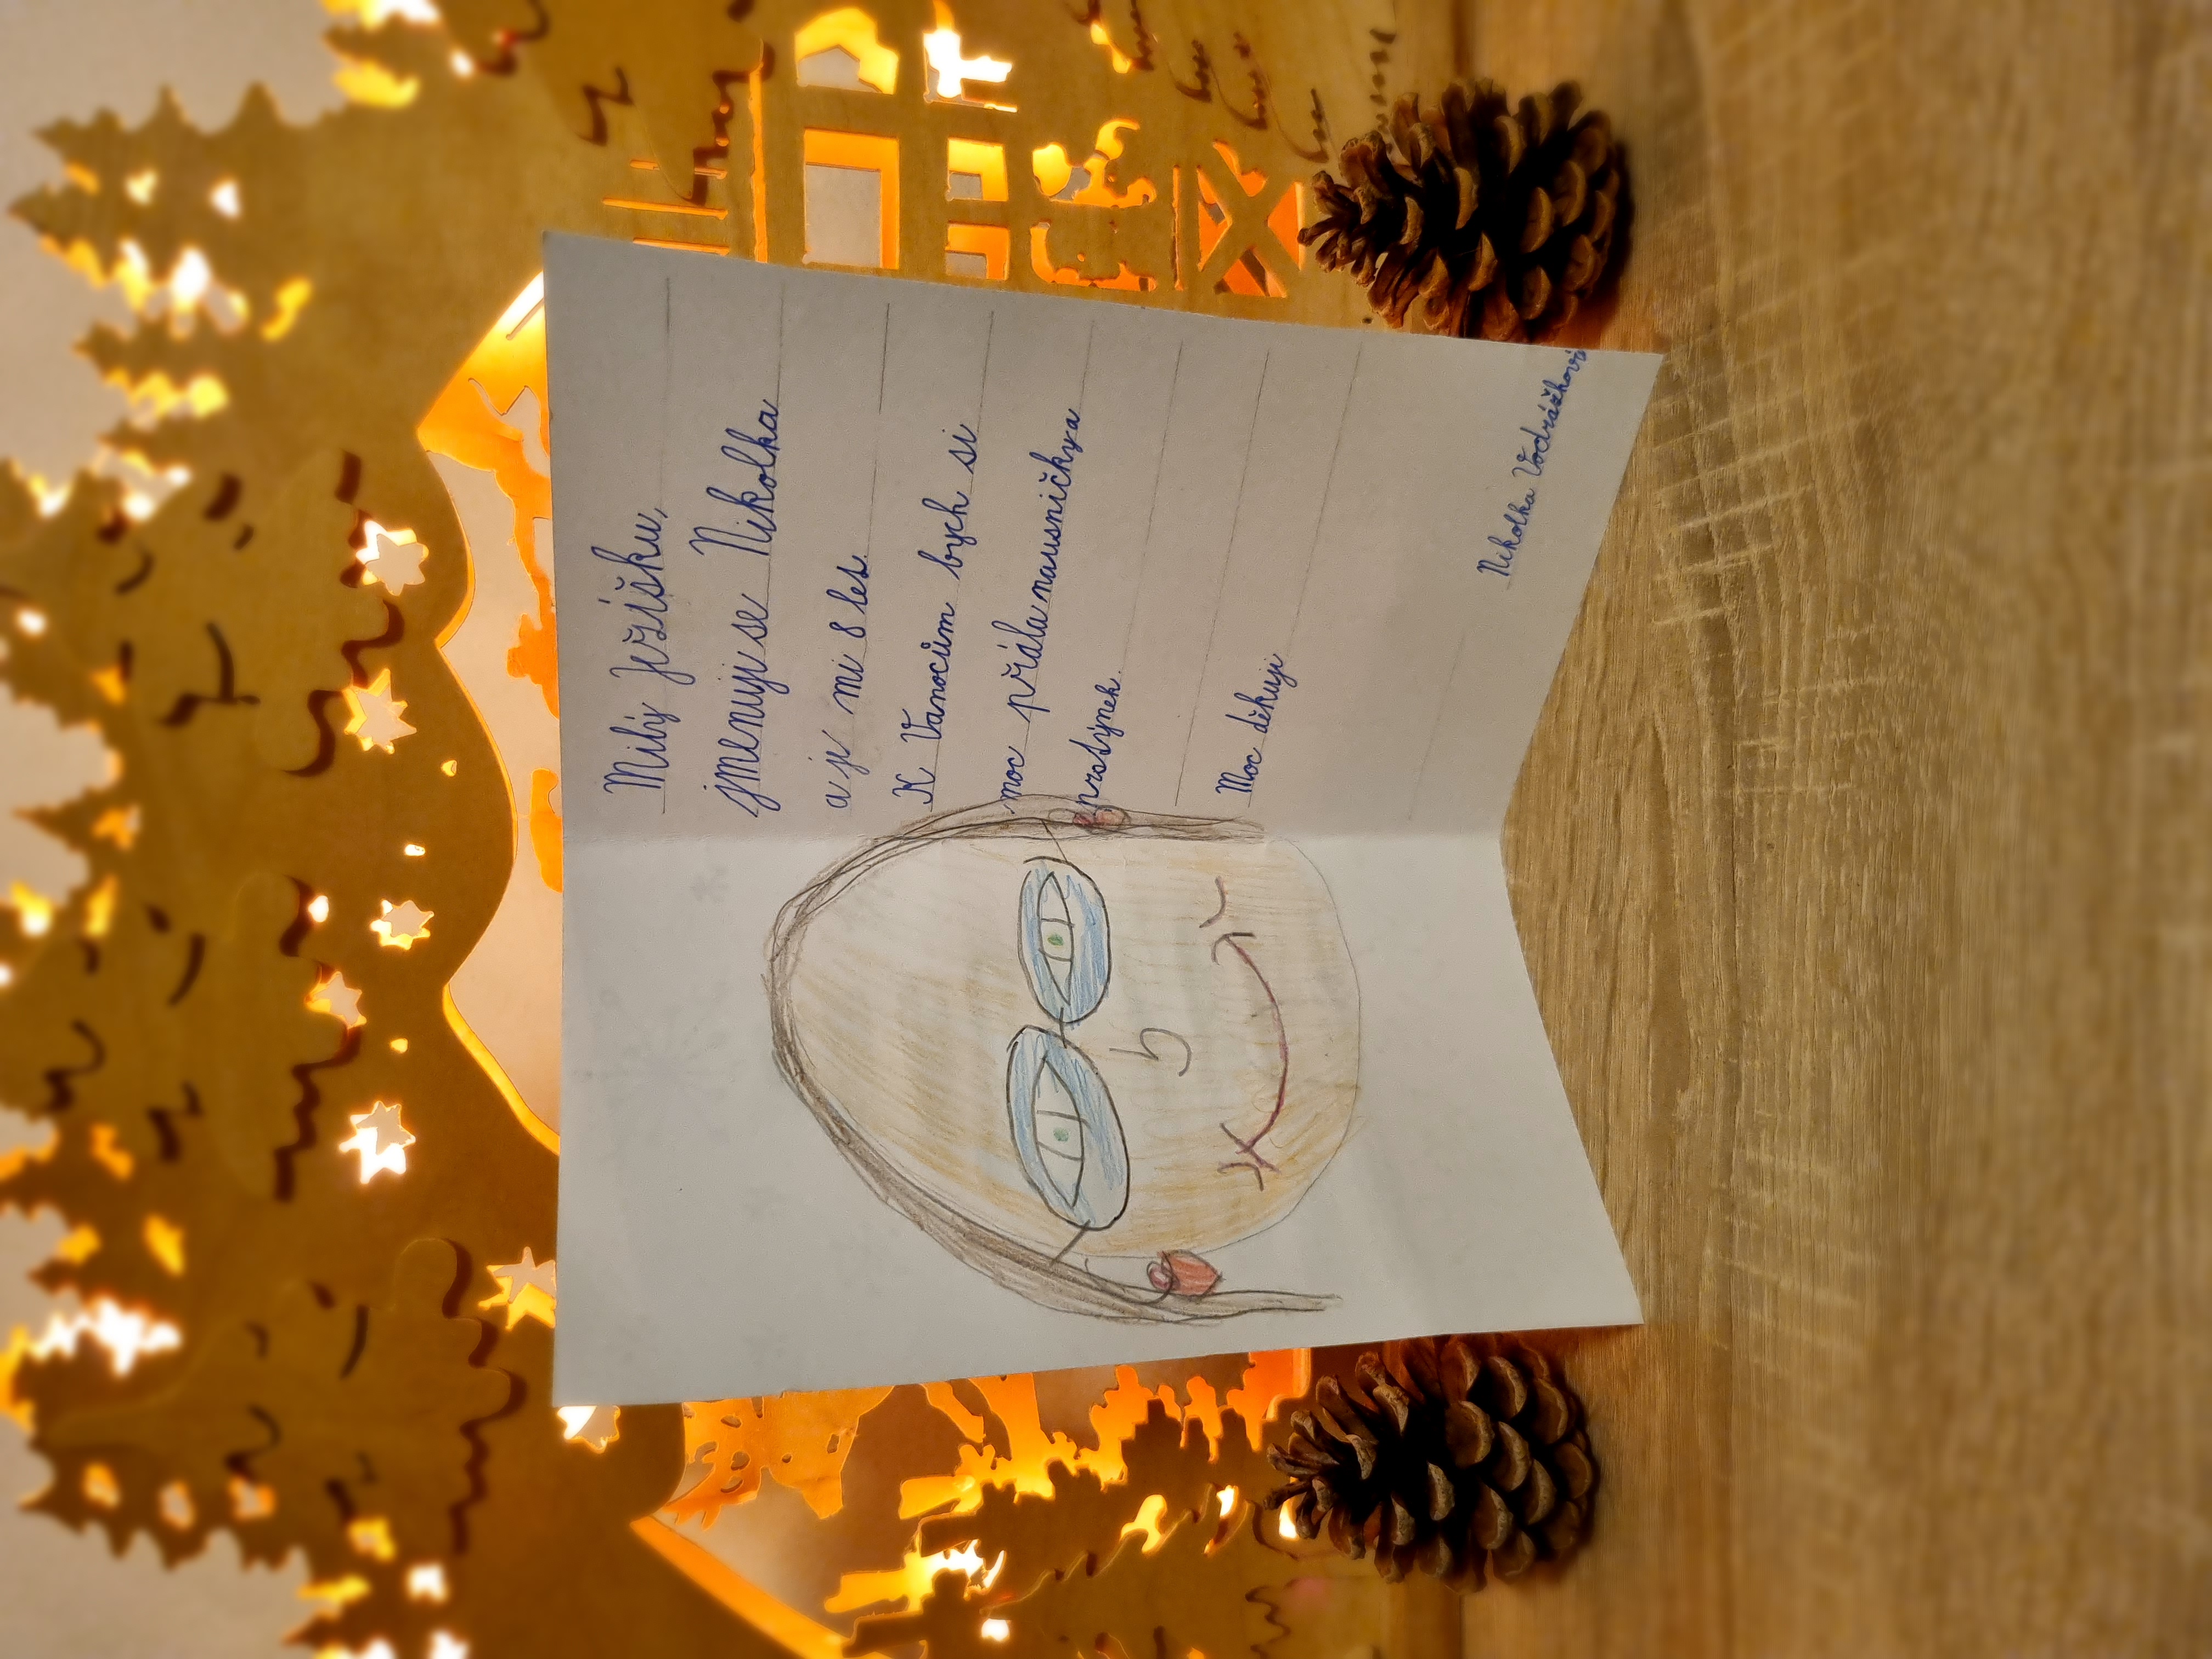 Milý Ježíšku,
jmenuji se Nikolka
a je mi 8 let.
K Vánocům bych si
moc přála nausničkya
prstýnek.
Moc děkuji
Nikolka Vodrážková